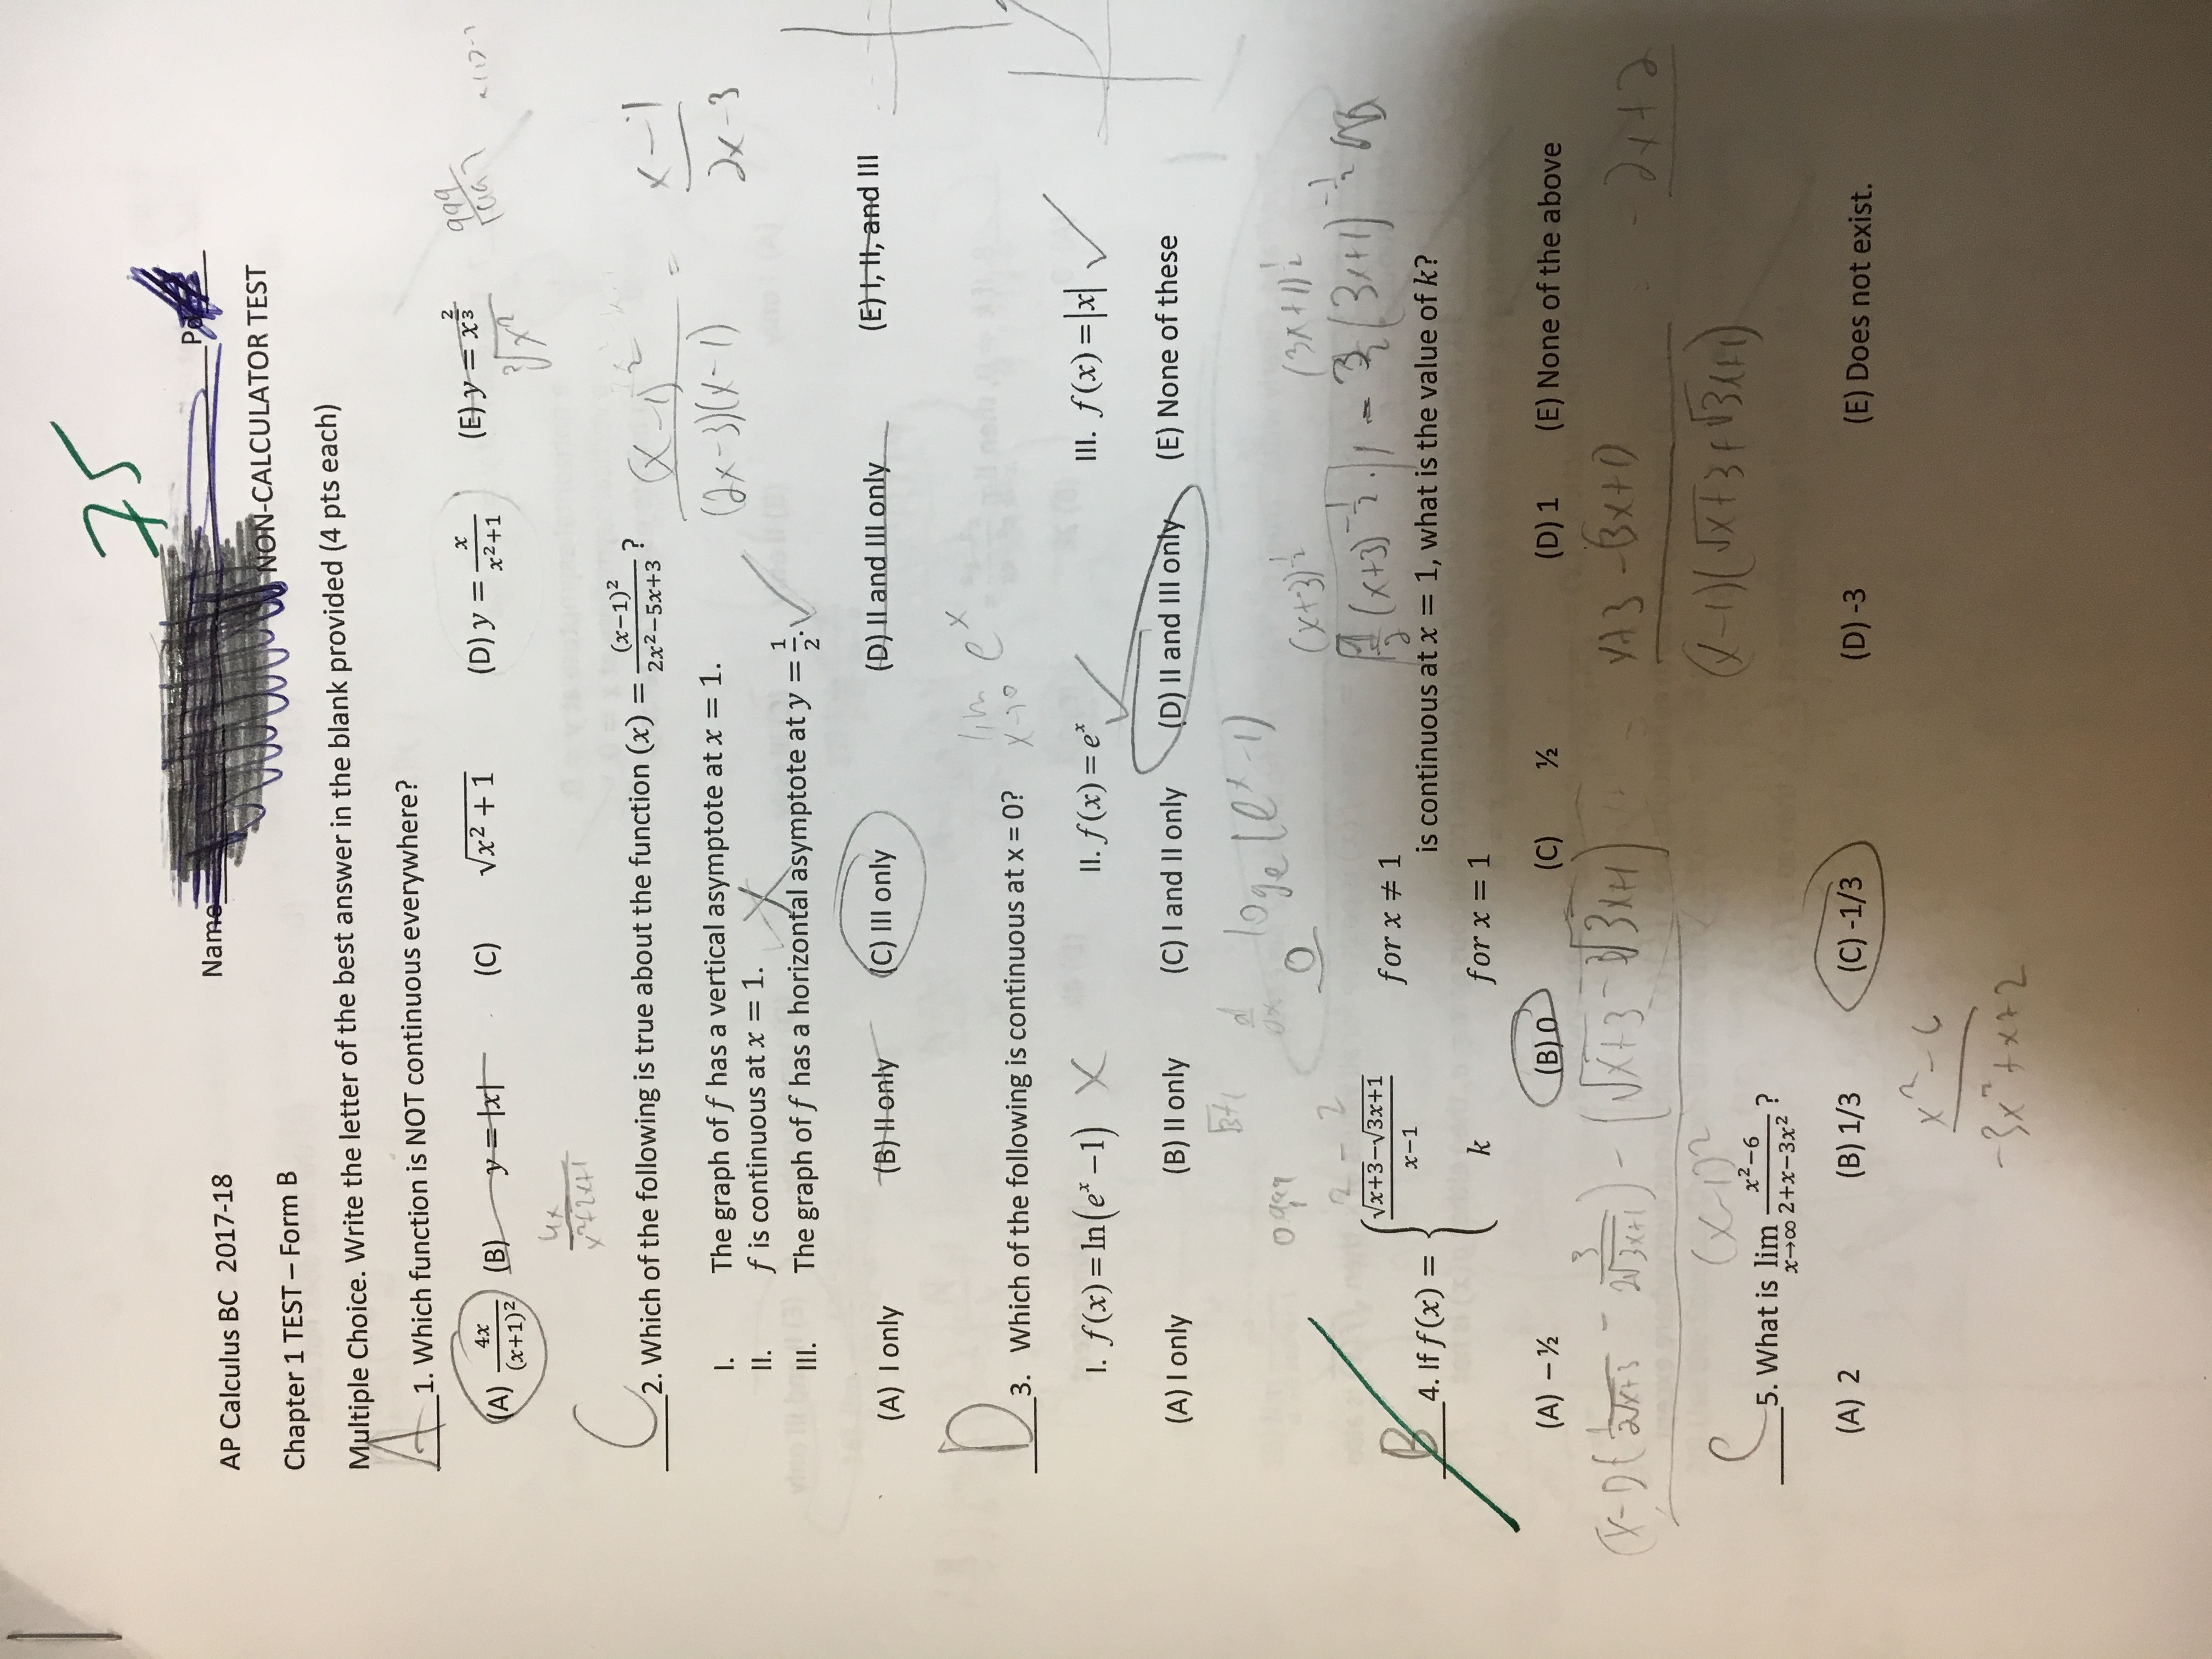 75
Name Pd
AP Calculus BC 2017-18
NON-CALCULATOR TEST
Chapter 1 TEST – Form B
Multiple Choice. Write the letter of the best answer in the blank provided (4 pts each)
A 1. Which function is NOT continuous everywhere?
(A) 4x/(x+1)² (B) y = |x| (C) √(x² + 1) (D) y = x/(x²+1) (E) y = x^(2/3)
999
∛x²
4x/(x²+2x+1)
C 2. Which of the following is true about the function (x) = (x−1)²/(2x²−5x+3) ?
(x-1)²/((2x-3)(x-1)) = (x-1)/(2x-3)
I. The graph of f has a vertical asymptote at x = 1.
II. f is continuous at x = 1. X
III. The graph of f has a horizontal asymptote at y = 1/2. ✓
(A) I only (B) II only (C) III only (D) II and III only (E) I, II, and III
lim x→0 e^x
D 3. Which of the following is continuous at x = 0?
I. f(x) = ln(e^x − 1) X II. f(x) = e^x ✓ III. f(x) = |x| ✓
(A) I only (B) II only (C) I and II only (D) II and III only (E) None of these
d/dx log_e(e^x -1)
0.999
0
(x+3)^(1/2) (3x+1)^(1/2)
2 - 2
1/2 (x+3)^(-1/2) · 1 - 3/2 (3x+1)^(-1/2)
B 4. If f(x) = { (√(x+3)−√(3x+1))/(x−1) for x ≠ 1
is continuous at x = 1, what is the value of k?
k for x = 1
(A) – ½ (B) 0 (C) ½ (D) 1 (E) None of the above
((x-1)(1/(2√(x+3)) - 3/(2√(3x+1))) - (√(x+3) - √(3x+1)))/(x-1)²
(x+3 - (3x+1))/((x-1)(√(x+3) + √(3x+1)))
-2x+2
C 5. What is lim x→∞ (x²−6)/(2+x−3x²) ?
(A) 2 (B) 1/3 (C) -1/3 (D) -3 (E) Does not exist.
(x²-6)/(-3x²+x+2)